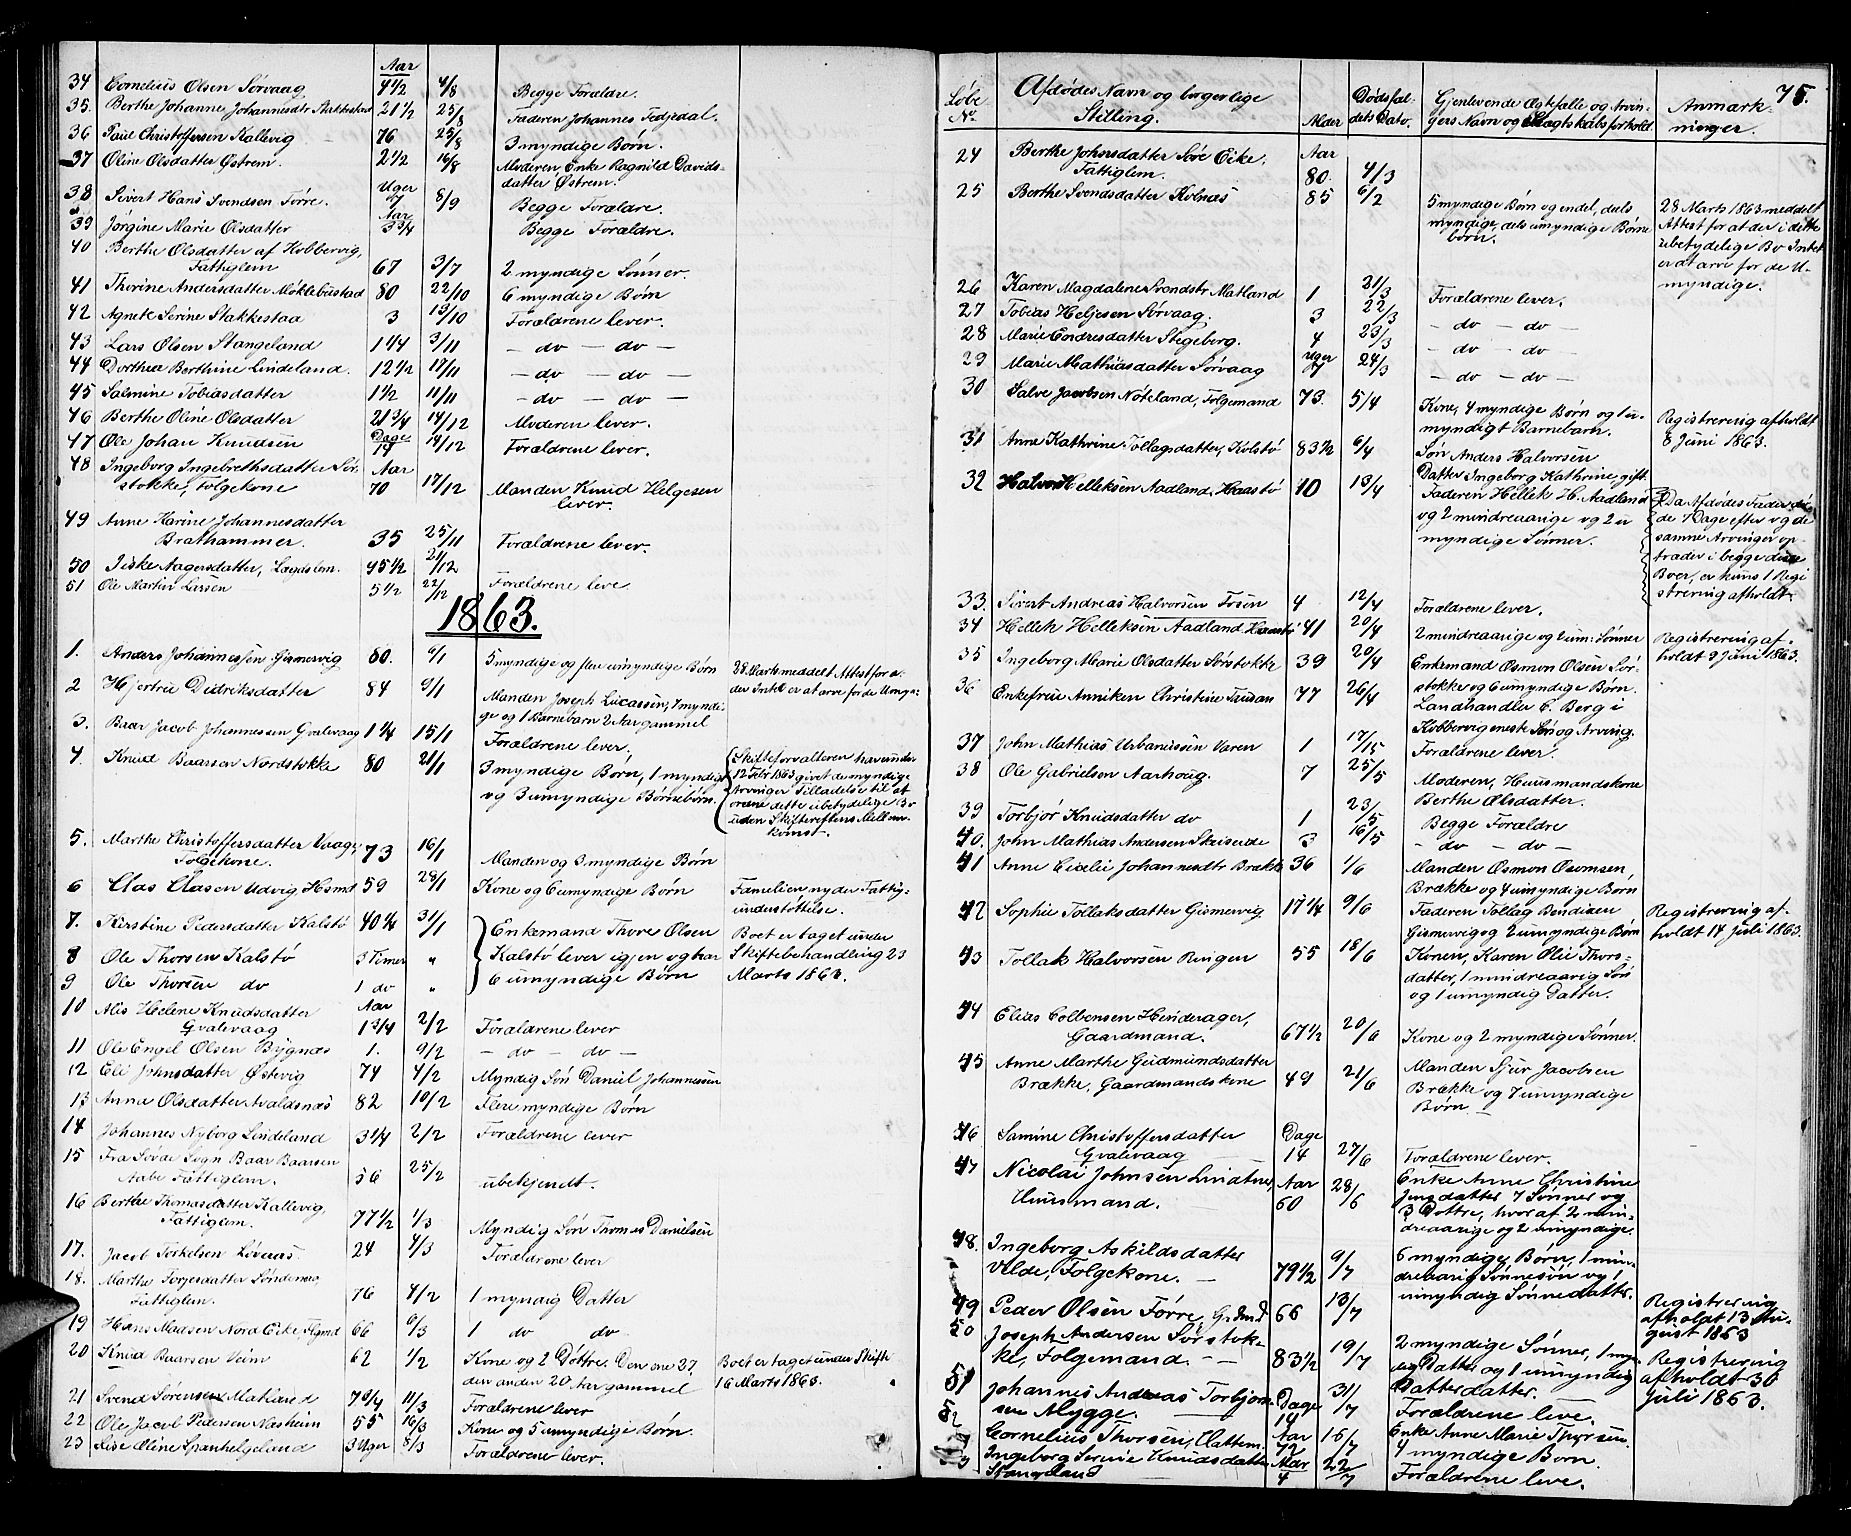 Aar
34 Cornelius Olsen Sørvaag 4 1/2 4/8 Begge Forældre.
35. Berthe Johanne Johannesdtr Stakkestad 21 1/2 25/8 Faderen Johannes Tedjedal.
36 Paul Christoffersen Kallevig 76 25/8 3 myndige Børn.
37 Oline Olsdatter Østrem. 2 1/2 16/8 Moderen Enke Ragnild Davids-
datter Østrem.
38 Sivert Hans Svendsen Førre. Uger 7 8/9 Begge Forældre.
39 Jørgine Marie Olsdatter Aar 3 3/4 Begge Forældre.
40 Berthe Olsdatter af Kobbervig,
Fattiglem 67 3/7 2 myndige Sønner.
41 Thorine Andersdatter Møklebustad 80 22/10 6 myndige Børn
42 Agnete Serine Stakkestad 3 13/10 Forældrene lever.
43 Lars Olsen Stangeland 1 1/4 3/11 – do – do –
44 Dorthea Berthine Lindeland. 12 1/2 17/11 – do – do –
45 Salmine Tobiasdatter 1 1/2 11/11 – do – do –
46 Berthe Oline Olsdatter 21 3/4 14/12 Moderen lever.
47 Ole Johan Knudsen Dage 14 14/12 Forældrene lever.
48 Ingeborg Ingebrethsdatter Sør-
stokke, Folgekone Aar 70 17/12 Manden Knud Helgesen
lever.
49 Anne Karine Johannesdatter
Brathammer. 35 25/11 Forældrene lever.
50 Siske Aagersdatter, Lægdslem. 45 1/2 21/12
51 Ole Martin Larsen 5 1/2 22/12 Forældrene leve
1863.
1. Anders Johannessen Gismervig 80. 6/1 5 myndige og flere umyndige Børn 28. Marts meddelt Attest for a.
der Intet er at arve for de Umyn:
2 Hjertru Didriksdatter 84 9/1 Manden Joseph Lucassen, 7 myndi-
ge og 1 Barnebarn 2 Aar gammel
3. Baar Jacob Johannessen Gvalevaag 1 1/4 15/1 Forældrene lever.
4. Knud Baarsen Nordstokke 80 21/1 3 myndige Børn, 1 myndigt
og 3 umyndige Børnebørn. Skifteforvalteren har under
12 Febr 1863 givet de myndige
Arvinger Tilladelse til at
ordne dette ubetydelige Bo
uden Skifterettens Mellem-
komst.
5. Marthe Christoffersdatter Vaage,
Folgekone. 73 16/1 Manden og 3 myndige Børn
6 Clas Clasen Udvig, Hsmd 59 28/1 Kone og 6 umyndige Børn Famelien nyder Fattig-
understøttelse.
7. Kirstine Pedersdatter Kalstø 40 1/4 31/1 Enkemand Thore Olsen Boet er taget under
8 Ole Thorsen Kalstø 3 Timer " Kalstø lever igjen og har Skiftebehandling 23
9 Ole Thorsen do 1 do " 6 umyndige Børn Marts 1863.
10 Alis Helene Knudsdatter
Gvalevaag Aar 1 3/4 2/2 Forældrene lever
11 Ole Engel Olsen Bygnæs 1. 9/2 – do – do –
12 Eli Johnsdatter Østevig 74 4/2 Myndig Søn Daniel Johannessen
13 Anna Olsdatter Avaldsnæs 82 10/2 Flere myndige Børn
14 Johannes Nyborg Lindeland 3 1/4 2/2 Forældrene lever
15 Fra Søvde Sogn Baar Baarsen
Aabe Fattiglem. 56 25/2 ubekjendt.
16 Berthe Thomasdatter Kallevig,
Fattiglem. 77 1/2 1/3 Myndig Søn Thomas Danielsen
17. Jacob Torkelsen Løvaas. 24 4/3 Forældrene lever
18. Marthe Torjesdatter Søndenaa,
Fattiglem. 76 4/2 1 myndig Datter
19 Hans Madsen Nord Eike, Flgmd 66 6/3 1 do do.
20 Knud Baarsen Veim 62 1/2 Kone og 2 Døttre. Den ene 27, Boet er taget under Skifte
den anden 20 Aar gammel 16 Marts 1863.
21 Svend Sørensen Matland 7 3/4 11/3 Forældrene lever
22 Ole Jacob Pedersen Næsheim 55 16/3 Kone og 5 umyndige Børn.
23 Lise Oline Spanhelgeland 3 Uger 8/3 Forældrene lever.
75.
Løbe No. Afdødes Navn og borgerlige
Stilling. Alder Dødsfal-
dets Dato. Gjenlevende Ægtefælle og Arvin-
gers Navn og Slægtskabsforhold. Anmærk-
ninger.
24 Berthe Johnsdatter Søre Eike,
Fattiglem. Aar 80. 4/3
25 Berthe Svendsdatter Kolnæs 85 6/2 5 myndige Børn og endel, dels
myndige, dels umyndige Børne
børn. 28 Marts 1863 meddelt
Attest for at der i dette
ubetydelige Bo Intet
er at arve for de U-
myndige.
26 Karen Magdalene Svendsdtr Matland 1 21/3 Forældrene lever.
27 Tobias Heljesen Sørvaag. 3 22/3 – do – do –
28 Marie Endresdatter Stegeberg. 4 23/3 – do – do –
29 Marie Mathiasdatter Sørvaag Uger 7 24/3 – do – do –
30 Salve Jacobsen Nøteland, Folgemand 73. 5/4 Kone, 4 myndige Børn og 1 u-
myndigt Barnebarn. Registrering afholdt
8 Juni 1863.
31 Anne Kathrine Tollagsdatter, Kolstø 83 1/2 6/4 Søn Anders Halvorsen
Datter Ingeborg Kathrine gift.
32 Halvor Helleksen Aadland, Haastø 10 13/4 Faderen Hellek H. Aadland
og 2 mindreaarige og 2 u
myndige Sønner. Da Afdødes Fader dø-
de 7 Dage efter og de
samme Arvinger op-
træder i begge disse
Boer, er kuns 1 Regi
strering afholdt.
33. Sivert Andreas Halvorsen Fosen 4 12/4 Forældrene lever.
34 Hellek Helleksen Aadland Haastø 41 20/4 2 mindreaarige og 2 um: Sønner Registrering af-
holdt 9 Juni 1863.
35 Ingeborg Marie Olsdatter Sørstokke 39 20/4 Enkemand Osmon Olsen Sør-
stokke og 6 umyndige Børn.
36 Enkefrue Anniken Christine Tausan 77 26/4 Landhandler C. Berg i
Kobbervig eneste Søn og Arving.
37 John Mathias Urbanussen Varen 1 17/15 Forældrene lever.
38 Ole Gabrielsen Aarhoug. 7 25/5 Moderen, Huusmandskone
Berthe Olsdatter.
39 Torbjør Knudsdatter do 1 23/5 Begge Forældre
40. John Mathias Andersen Skriseide 3 16/5 – do – do –
41 Anne Cecelie Johannesdtr Brække 36 1/6 Manden Osmon Osomsen,
Brække og 4 umyndige Børn
42 Sophie Tollaksdatter Gismervig 17 1/4 9/6 Faderen Tollag Bendixen
Gismervig og 2 umyndige Børn Registrering af-
holdt 14 Juli 1863.
43 Tollak Halvorsen Ringen 55 18/6 Konen, Karen Olie Thors-
datter, 1 mindreaarig Søn
og 1 umyndig Datter.
44 Elias Colbensen Hinderager,
Gaardmand. 67 1/2 20/6 Kone og 2 myndige Sønner.
45 Anne Marthe Gudmundsdatter
Brække, Gaardmandskone 49 21/6 Manden Sjur Jacobsen
Brække og 7 umyndige
Børn. –
46 Samine Christoffersdatter
Gvalevaag Dage 14 27/6 Forældrene lever.
47 Nicolai Johnsen Liniatne,
Huusmand. Aar 60 28/6 Enke Anne Christine
Jensdatter 7 Sønner og
3 Døttre, hvoraf 2 min-
dreaarige og 2 umyndige.
48. Ingeborg Askildsdatter
Velde, Folgekone. – 79 1/2 9/7 6 myndige Børn, 1 min-
dreaarig Sønnesøn og 1
umyndig Sønnedatter.
49 Peder Olsen Førre, Grdmd 66 13/7 Registrering
afholdt 13 Au-
gust 1863
50 Joseph Andersen Sørstok-
ke, Folgemand. – – 83 1/2 19/7 2 myndige Sønner, 1 myn-
dig Datter og 1 umyndig
Datterdatter. Registrering
afholdt 30
Juli 1863.
51 Johannes Andreas Torbjørn-
sen Mygge. Dage 14 31/7 Forældrene leve.
52 Cornelius Thorsen, Hattem. Aar 72 15/7 Enke Anne Marie Thorsen.
4 myndige Børn.
Ingeborg Serine Knudsdatter
Stangeland Mdr 4 22/7 Forældrene leve.